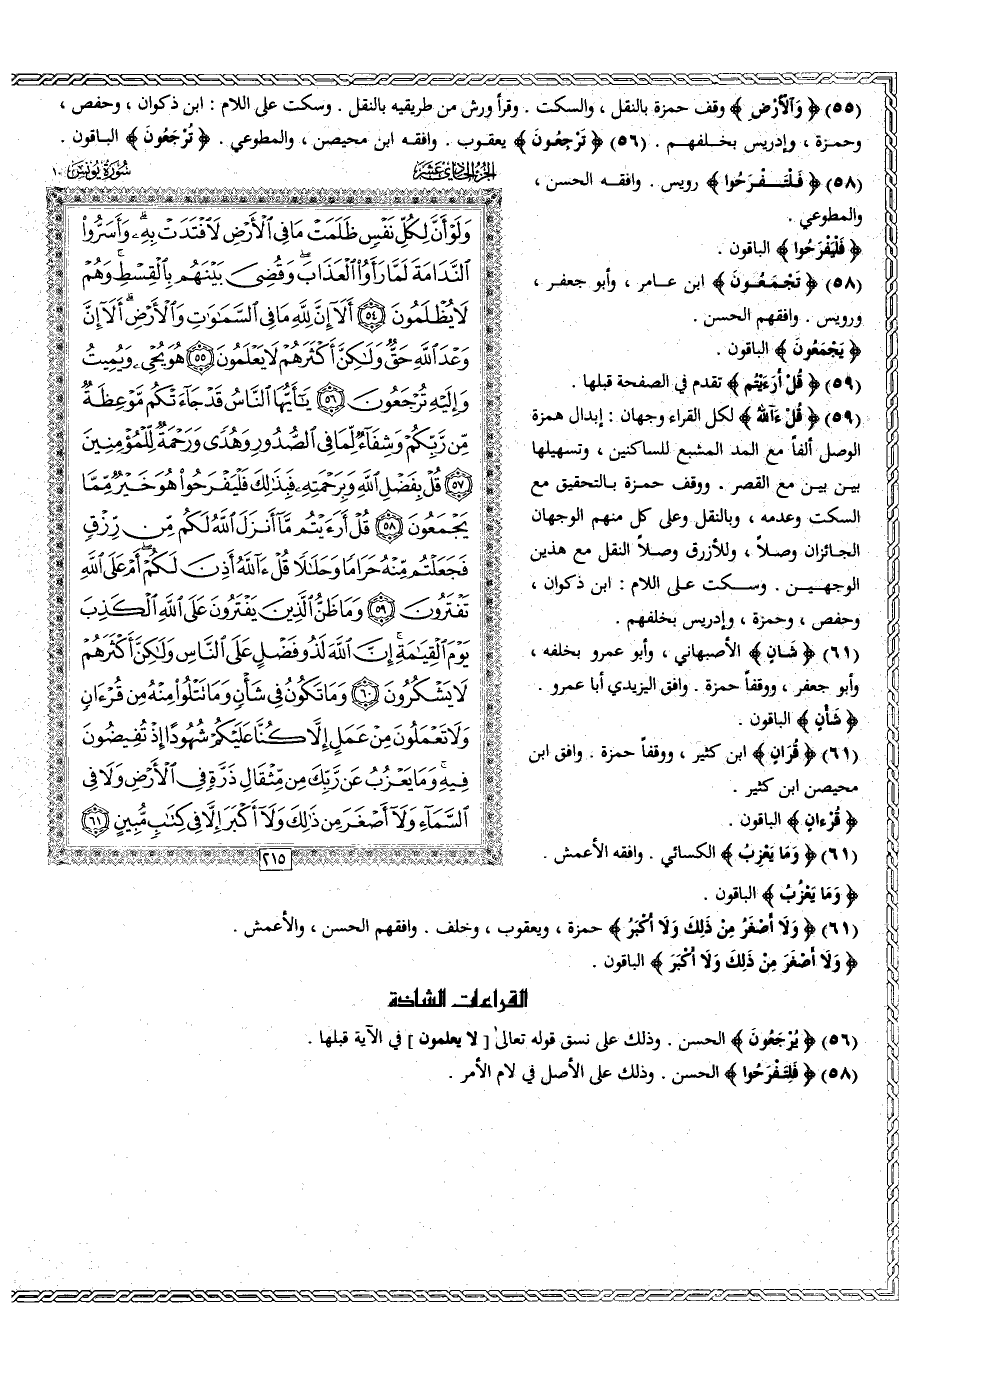 (٥٥) ﴿ وَٱلْأَرْضِ ﴾ وقف حمزة بالنقل ، والسكت . وقرأ ورش من طريقيه بالنقل . وسكت على اللام : ابن ذكوان ، وحفص ،
وحمزة ، وإدريس بخلفهم . (٥٦) ﴿ تَرْجِعُونَ ﴾ يعقوب . وافقه ابن محيصن ، والمطوعي . ﴿ تُرْجَعُونَ ﴾ الباقون .
(٥٨) ﴿ فَلْتَفْرَحُوا ﴾ رويس . وافقه الحسن ،
والمطوعي .
﴿ فَلْيَفْرَحُوا ﴾ الباقون .
(٥٨) ﴿ تَجْمَعُونَ ﴾ ابن عامر ، وأبو جعفر ،
ورويس . وافقهم الحسن .
﴿ يَجْمَعُونَ ﴾ الباقون .
(٥٩) ﴿ قُلْ أَرَءَيْتُم ﴾ تقدم في الصفحة قبلها .
(٥٩) ﴿ قُلْ ءَآللهُ ﴾ لكل القراء وجهان : إبدال همزة
الوصل ألفاً مع المد المشبع للساكنين ، وتسهيلها
بين بين مع القصر . ووقف حمزة بالتحقيق مع
السكت وعدمه ، وبالنقل وعلى كل منهم الوجهان
الجائزان وصلاً ، وللأزرق وصلاً النقل مع هذين
الوجهين . وسكت على اللام : ابن ذكوان ،
وحفص ، وحمزة ، وإدريس بخلفهم .
(٦١) ﴿ شَانٍ ﴾ الأصبهاني ، وأبو عمرو بخلفه ،
وأبو جعفر ، ووقفاً حمزة . وافق اليزيدي أبا عمرو .
﴿ شَأْنٍ ﴾ الباقون .
(٦١) ﴿ قُرَانٍ ﴾ ابن كثير ، ووقفاً حمزة . وافق ابن
محيصن ابن كثير .
﴿ قُرْءَانٍ ﴾ الباقون .
(٦١) ﴿ وَمَا يَعْزِبُ ﴾ الكسائي . وافقه الأعمش .
﴿ وَمَا يَعْزُبُ ﴾ الباقون .
الجزء الحادي عشر
سورة يونس ١٠
وَلَوْ أَنَّ لِكُلِّ نَفْسٍ ظَلَمَتْ مَا فِى ٱلْأَرْضِ لَٱفْتَدَتْ بِهِۦ ۗ وَأَسَرُّوا۟
ٱلنَّدَامَةَ لَمَّا رَأَوُا۟ ٱلْعَذَابَ ۖ وَقُضِىَ بَيْنَهُم بِٱلْقِسْطِ ۚ وَهُمْ
لَا يُظْلَمُونَ ٥٤ أَلَآ إِنَّ لِلَّهِ مَا فِى ٱلسَّمَٰوَٰتِ وَٱلْأَرْضِ ۗ أَلَآ إِنَّ
وَعْدَ ٱللَّهِ حَقٌّ وَلَٰكِنَّ أَكْثَرَهُمْ لَا يَعْلَمُونَ ٥٥ هُوَ يُحْىِۦ وَيُمِيتُ
وَإِلَيْهِ تُرْجَعُونَ ٥٦ يَٰٓأَيُّهَا ٱلنَّاسُ قَدْ جَآءَتْكُم مَّوْعِظَةٌ
مِّن رَّبِّكُمْ وَشِفَآءٌ لِّمَا فِى ٱلصُّدُورِ وَهُدًى وَرَحْمَةٌ لِّلْمُؤْمِنِينَ
٥٧ قُلْ بِفَضْلِ ٱللَّهِ وَبِرَحْمَتِهِۦ فَبِذَٰلِكَ فَلْيَفْرَحُوا۟ هُوَ خَيْرٌ مِّمَّا
يَجْمَعُونَ ٥٨ قُلْ أَرَءَيْتُم مَّآ أَنزَلَ ٱللَّهُ لَكُم مِّن رِّزْقٍ
فَجَعَلْتُم مِّنْهُ حَرَامًا وَحَلَٰلًا قُلْ ءَآللَّهُ أَذِنَ لَكُمْ ۖ أَمْ عَلَى ٱللَّهِ
تَفْتَرُونَ ٥٩ وَمَا ظَنُّ ٱلَّذِينَ يَفْتَرُونَ عَلَى ٱللَّهِ ٱلْكَذِبَ
يَوْمَ ٱلْقِيَٰمَةِ ۗ إِنَّ ٱللَّهَ لَذُو فَضْلٍ عَلَى ٱلنَّاسِ وَلَٰكِنَّ أَكْثَرَهُمْ
لَا يَشْكُرُونَ ٦٠ وَمَا تَكُونُ فِى شَأْنٍ وَمَا تَتْلُوا۟ مِنْهُ مِن قُرْءَانٍ
وَلَا تَعْمَلُونَ مِنْ عَمَلٍ إِلَّا كُنَّا عَلَيْكُمْ شُهُودًا إِذْ تُفِيضُونَ
فِيهِ ۚ وَمَا يَعْزُبُ عَن رَّبِّكَ مِن مِّثْقَالِ ذَرَّةٍ فِى ٱلْأَرْضِ وَلَا فِى
ٱلسَّمَآءِ وَلَآ أَصْغَرَ مِن ذَٰلِكَ وَلَآ أَكْبَرَ إِلَّا فِى كِتَٰبٍ مُّبِينٍ ٦١
٢١٥
(٦١) ﴿ وَلَا أَصْغَرُ مِنْ ذَلِكَ وَلَا أَكْبَرُ ﴾ حمزة ، ويعقوب ، وخلف . وافقهم الحسن ، والأعمش .
﴿ وَلَا أَصْغَرَ مِنْ ذَلِكَ وَلَا أَكْبَرَ ﴾ الباقون .
القراءات الشاذة
(٥٦) ﴿ يُرْجَعُونَ ﴾ الحسن . وذلك على نسق قوله تعالىٰ [ لا يعلمون ] في الآية قبلها .
(٥٨) ﴿ فَلِتَفْرَحُوا ﴾ الحسن . وذلك على الأصل في لام الأمر .